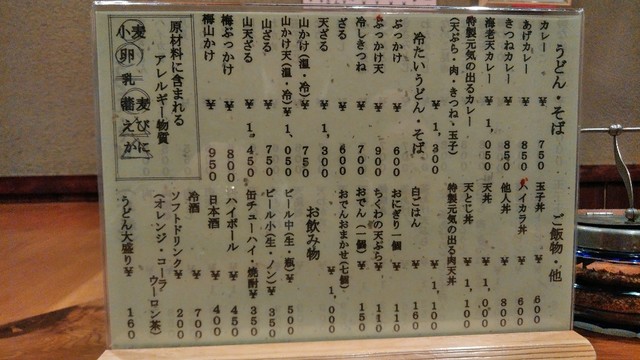 うどん・そば
カレー ￥750
あげカレー ￥850
きつねカレー ￥850
海老天カレー ￥1,050
特製元気の出るカレー
(天ぷら・肉・きつね・玉子)
￥1,300
冷たいうどん・そば
ぶっかけ ￥600
ぶっかけ天 ￥900
冷しきつね ￥700
ざる ￥600
天ざる ￥1,300
山かけ(温・冷) ￥750
山かけ天(温・冷) ￥1,050
山ざる ￥750
山天ざる ￥1,450
梅ぶっかけ ￥800
梅山かけ ￥950
原材料に含まれる
アレルギー物質
小麦
卵
乳
蕎麦
えび
かに
ご飯物・他
玉子丼 ￥600
ハイカラ丼 ￥600
他人丼 ￥800
天丼 ￥1,000
天とじ丼 ￥1,100
特製元気の出る肉天丼
￥1,100
白ごはん ￥160
おにぎり一個 ￥110
ちくわの天ぷら ￥110
おでん(一個) ￥150
おでんおまかせ(七個)
￥1,000
お飲み物
ビール中(生・瓶) ￥500
ビール小(生・ノン) ￥350
缶チューハイ・焼酎 ￥350
ハイボール ￥450
日本酒 ￥400
冷酒 ￥700
ソフトドリンク ￥200
(オレンジ・コーラ
ウーロン茶)
うどん大盛り ￥160